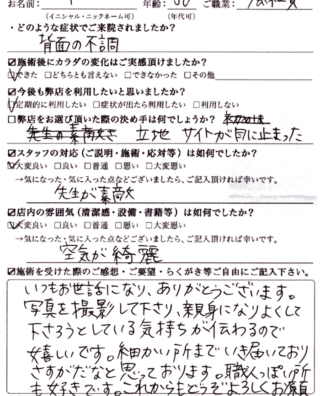 お名前： 年齢： ご職業：
（イニシャル・ニックネーム可） （年代可）
・どのような症状でご来院されましたか？
背面の不調
☑施術後にカラダの変化はご実感頂けましたか？
☑できた □どちらとも言えない □できなかった □その他
☑今後も弊店を利用したいと思いましたか？
☑定期的に利用したい □症状が出たら利用したい □利用しない
□弊店をお選び頂いた際の決め手は何でしょうか？
先生の素敵さ 立地 サイトが目に止まった
☑スタッフの対応（ご説明・施術・応対等）は如何でしたか？
☑大変良い □良い □普通 □悪い □大変悪い
→気になった・気に入った点などございましたら、ご記入頂ければ幸いです。
先生が素敵
☑店内の雰囲気（清潔感・設備・書籍等）は如何でしたか？
☑大変良い □良い □普通 □悪い □大変悪い
→気になった・気に入った点などございましたら、ご記入頂ければ幸いです。
空気が綺麗
☑施術を受けた際のご感想・ご要望・らくがき等ご自由にご記入下さい。
いつもお世話になり、ありがとうございます。
写真を撮影して下さり、親身になりよくして
下さろうとしている気持ちが伝わるので
嬉しいです。細かい所までいき届いており
さすがだなと思っております。職人っぽい所
も好きです。これからもどうぞよろしくお願